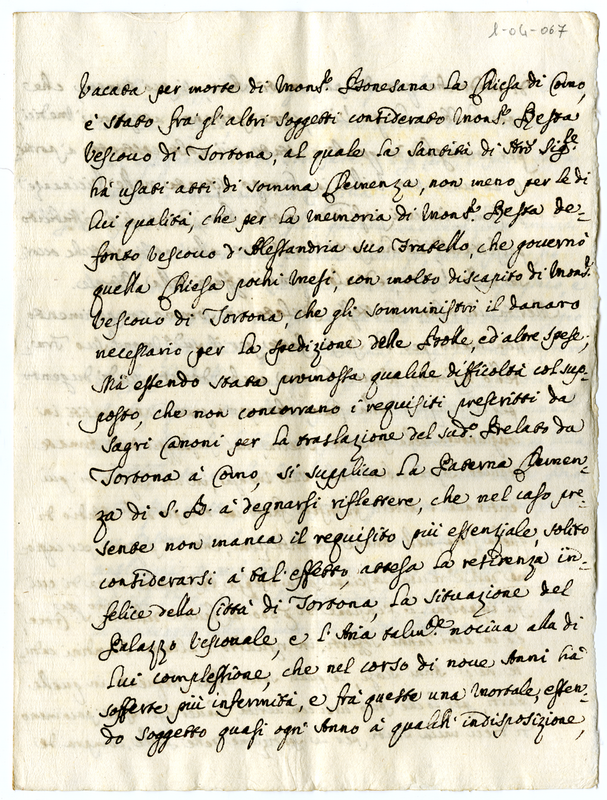 l-04-067
Vacata per morte di Mons.r Bonesana la Chiesa di Como,
è stato frà gl'altri soggetti considerato Mons.r Resta
Vescouo di Tortona, al quale la Santità di Nr̃o Sig.re
hà usati atti di somma Clemenza, non meno per le di
lui qualità, che per la memoria di Mons.r Resta de-
fonto Vescouo d'Alessandria suo Fratello, che gouernò
quella Chiesa pochi Mesi, con molto discapito di Mons.r
Vescouo di Tortona, che gli somministrò il danaro
necessario per la spedizione delle Bolle, ed altre spese;
Mà essendo stata promossa qualche difficoltà col sup-
posto, che non concorrano i requisiti prescritti da
Sagri Canoni per la traslazione del sud.o Prelato da
Tortona à Como, si supplica la Paterna Clemen-
za di S. B. à degnarsi riflettere, che nel caso pre-
sente non manca il requisito più essenziale, solito
considerarsi à tal'effetto, attesa la residenza in-
felice della Città di Tortona, la situazione del
Palazzo Vescouale, e l'Aria talm.te nociua alla di
lui complessione, che nel corso di noue Anni hà
sofferte più infermità, e frà queste una mortale, essen-
do soggetto quasi ogni Anno à qualch'indisposizione,